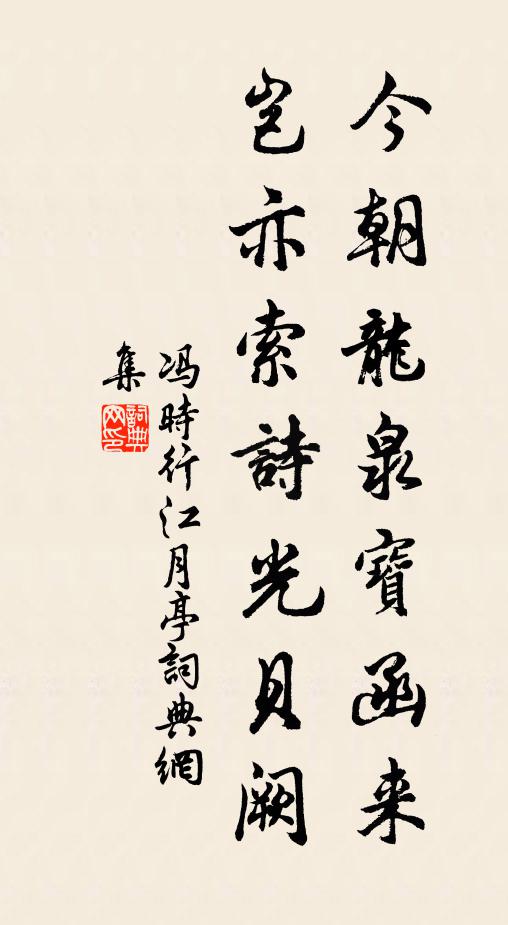 今朝龍泉寶函来
岂亦索詩光貝闕
冯時行江月亭詞典網
集
詞典網印